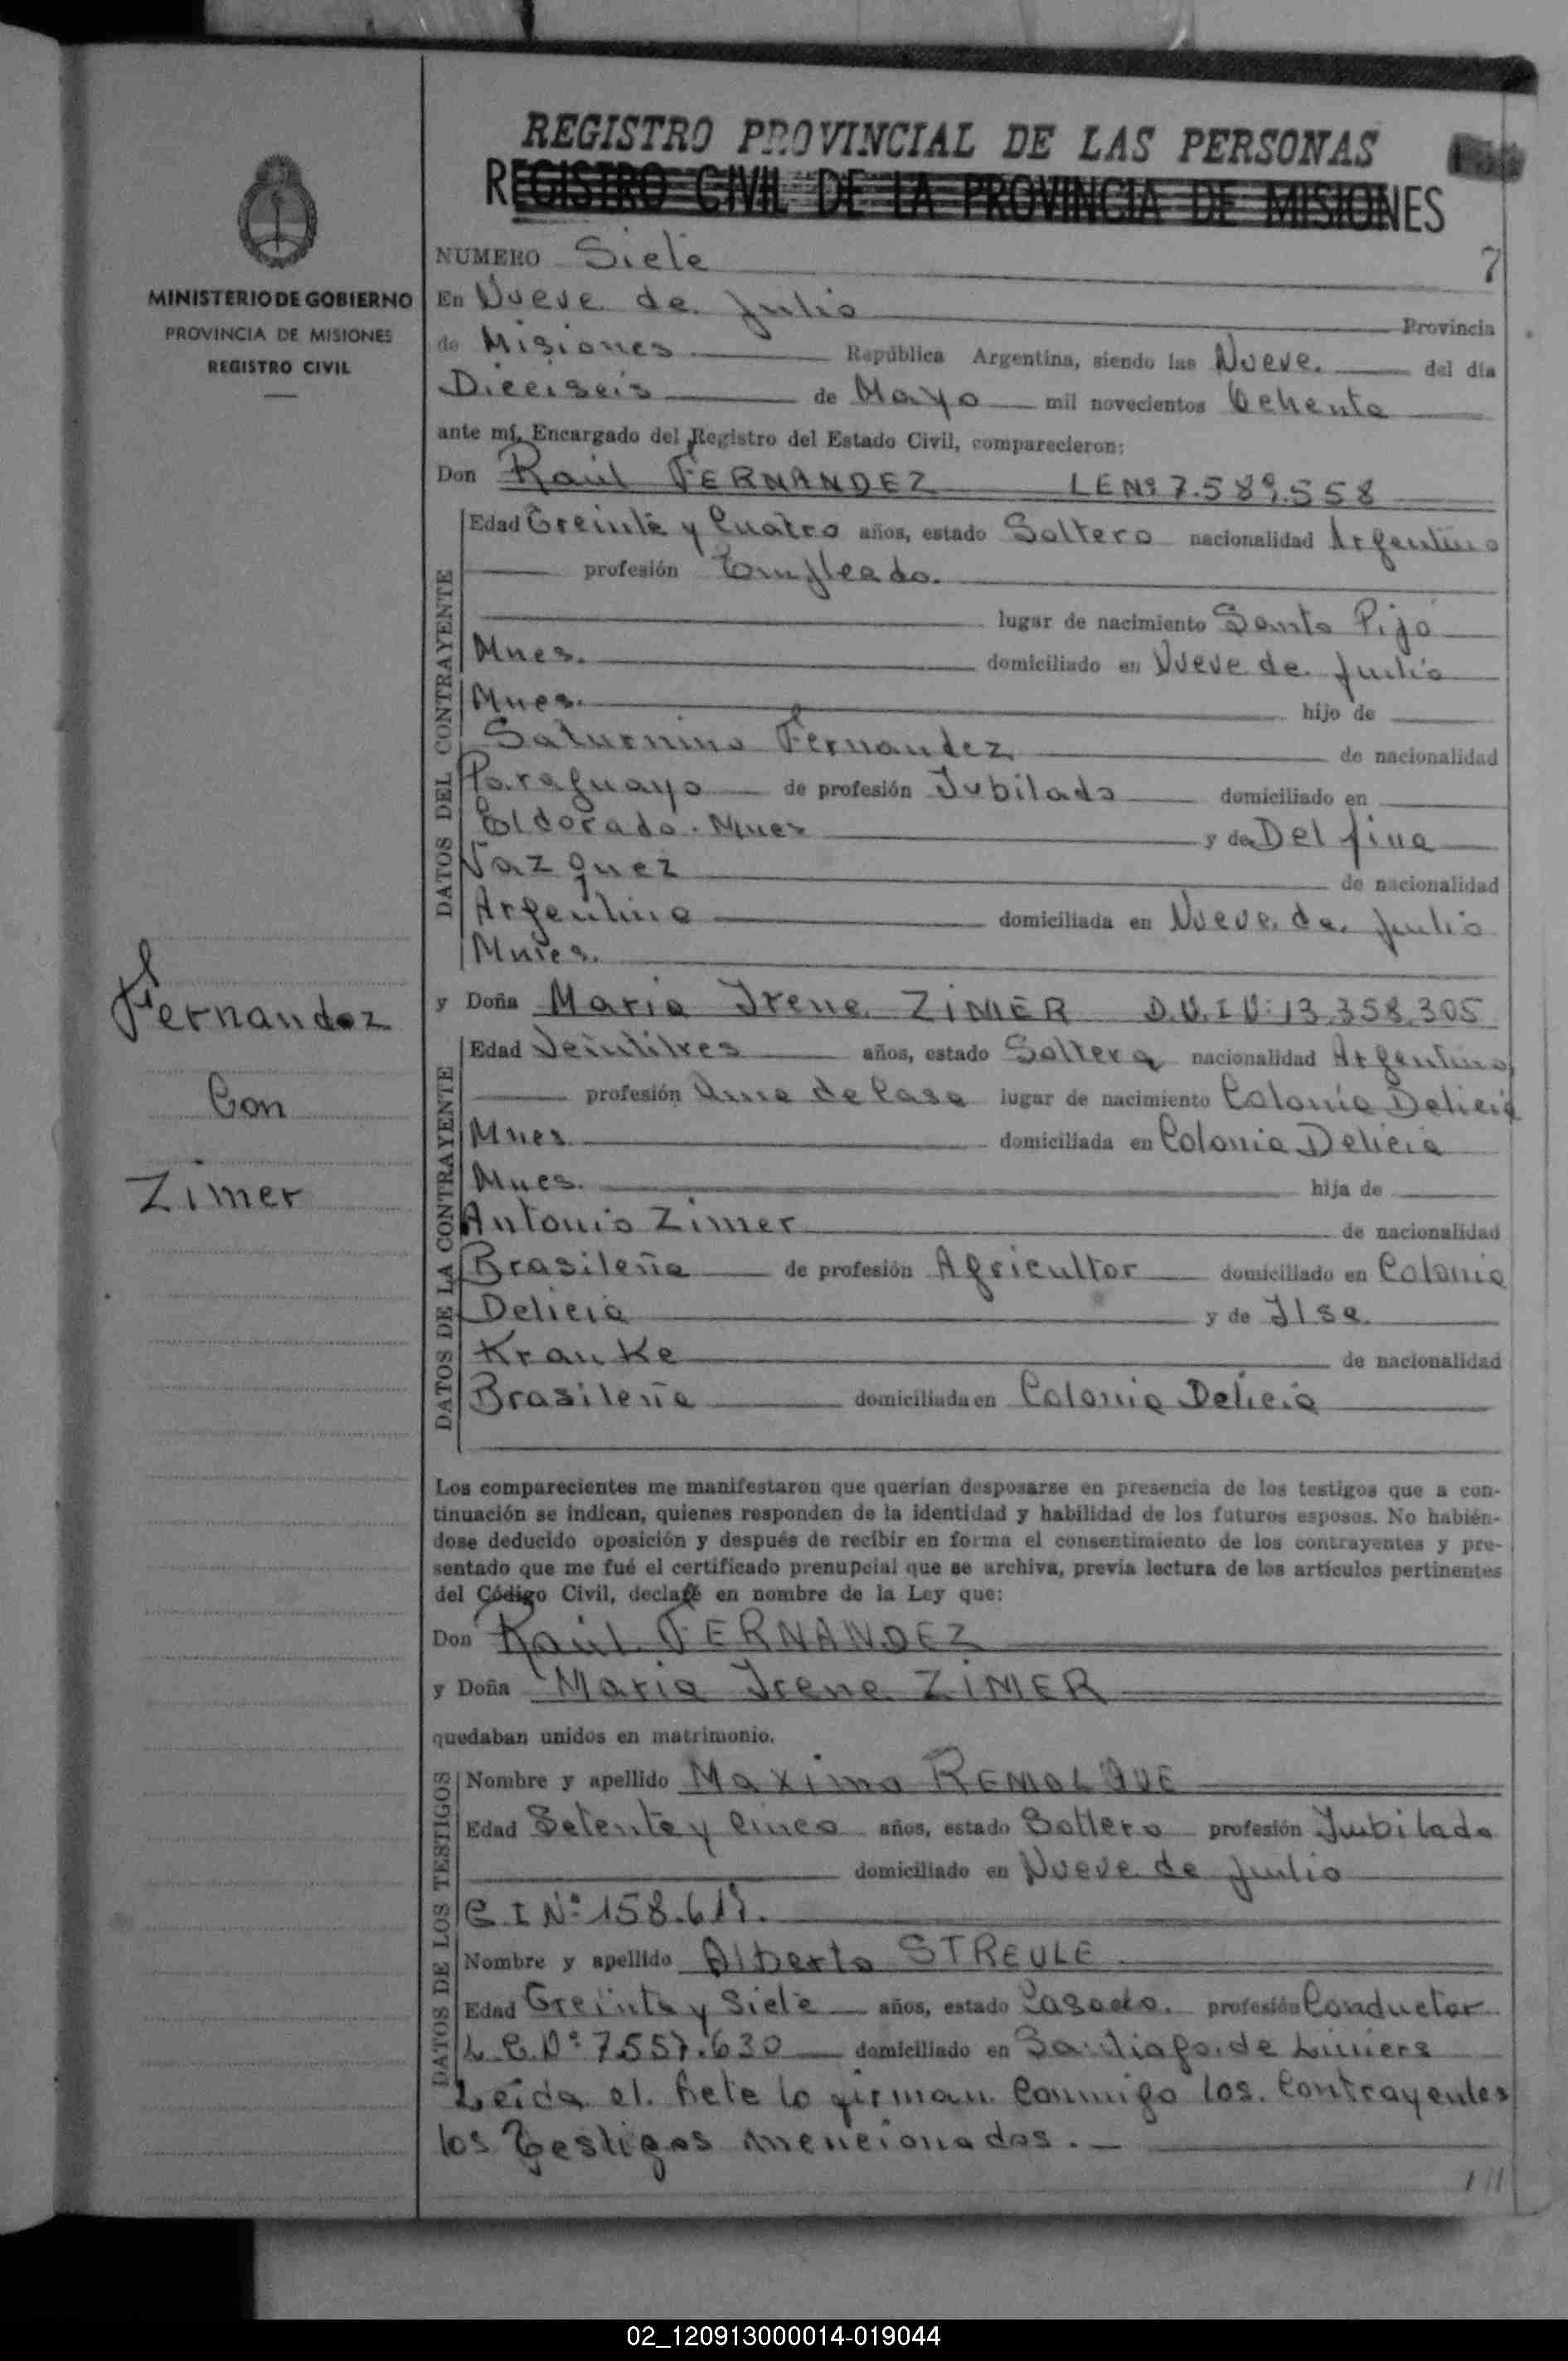 REGISTRO PROVINCIAL DE LAS PERSONAS
REGISTRO CIVIL DE LA PROVINCIA DE MISIONES
MINISTERIO DE GOBIERNO
PROVINCIA DE MISIONES
REGISTRO CIVIL
NUMERO Siete 7
En Nueve de Julio Provincia
de Misiones República Argentina, siendo las Nueve. del día
Dieciseis de Mayo mil novecientos Ochenta
ante mí, Encargado del Registro del Estado Civil, comparecieron:
Don Raúl FERNANDEZ LENº 7.589.558
DATOS DEL CONTRAYENTE
Edad Treinta y Cuatro años, estado Soltero nacionalidad Argentino
profesión Empleado.
lugar de nacimiento Santo Pipó
Mnes. domiciliado en Nueve de Julio
Mnes. hijo de
Saturnino Fernandez de nacionalidad
Paraguayo de profesión Jubilado domiciliado en
Eldorado. Mnes y de Delfina
Vazquez de nacionalidad
Argentina domiciliada en Nueve de Julio
Mnes.
Fernandez
Con
Zimer
y Doña Maria Irene ZIMER D.N.I N: 13.358.305
DATOS DE LA CONTRAYENTE
Edad Veintitres años, estado Soltera nacionalidad Argentina
profesión Ama de Casa lugar de nacimiento Colonia Delicia
Mnes domiciliada en Colonia Delicia
Mnes. hija de
Antonio Zimer de nacionalidad
Brasileña de profesión Agricultor domiciliado en Colonia
Delicia y de Ilse
Krauke de nacionalidad
Brasileña domiciliada en Colonia Delicia
Los comparecientes me manifestaron que querían desposarse en presencia de los testigos que a con-
tinuación se indican, quienes responden de la identidad y habilidad de los futuros esposos. No habién-
dose deducido oposición y después de recibir en forma el consentimiento de los contrayentes y pre-
sentado que me fué el certificado prenupcial que se archiva, previa lectura de los artículos pertinentes
del Código Civil, declaré en nombre de la Ley que:
Don Raúl FERNANDEZ
y Doña Maria Irene ZIMER
quedaban unidos en matrimonio.
DATOS DE LOS TESTIGOS
Nombre y apellido Maximo REMOLQUE
Edad Setenta y Cinco años, estado Soltero profesión Jubilado
domiciliado en Nueve de Julio
C I Nº 158.617.
Nombre y apellido Alberto STREULE
Edad Treinta y Siete años, estado Casado. profesión Conductor
L.E.Nº 7.557.630 domiciliado en Santiago de Liniers
Leida el Acta lo firman conmigo los Contrayentes
los Testigos mencionados.
02_120913000014-019044